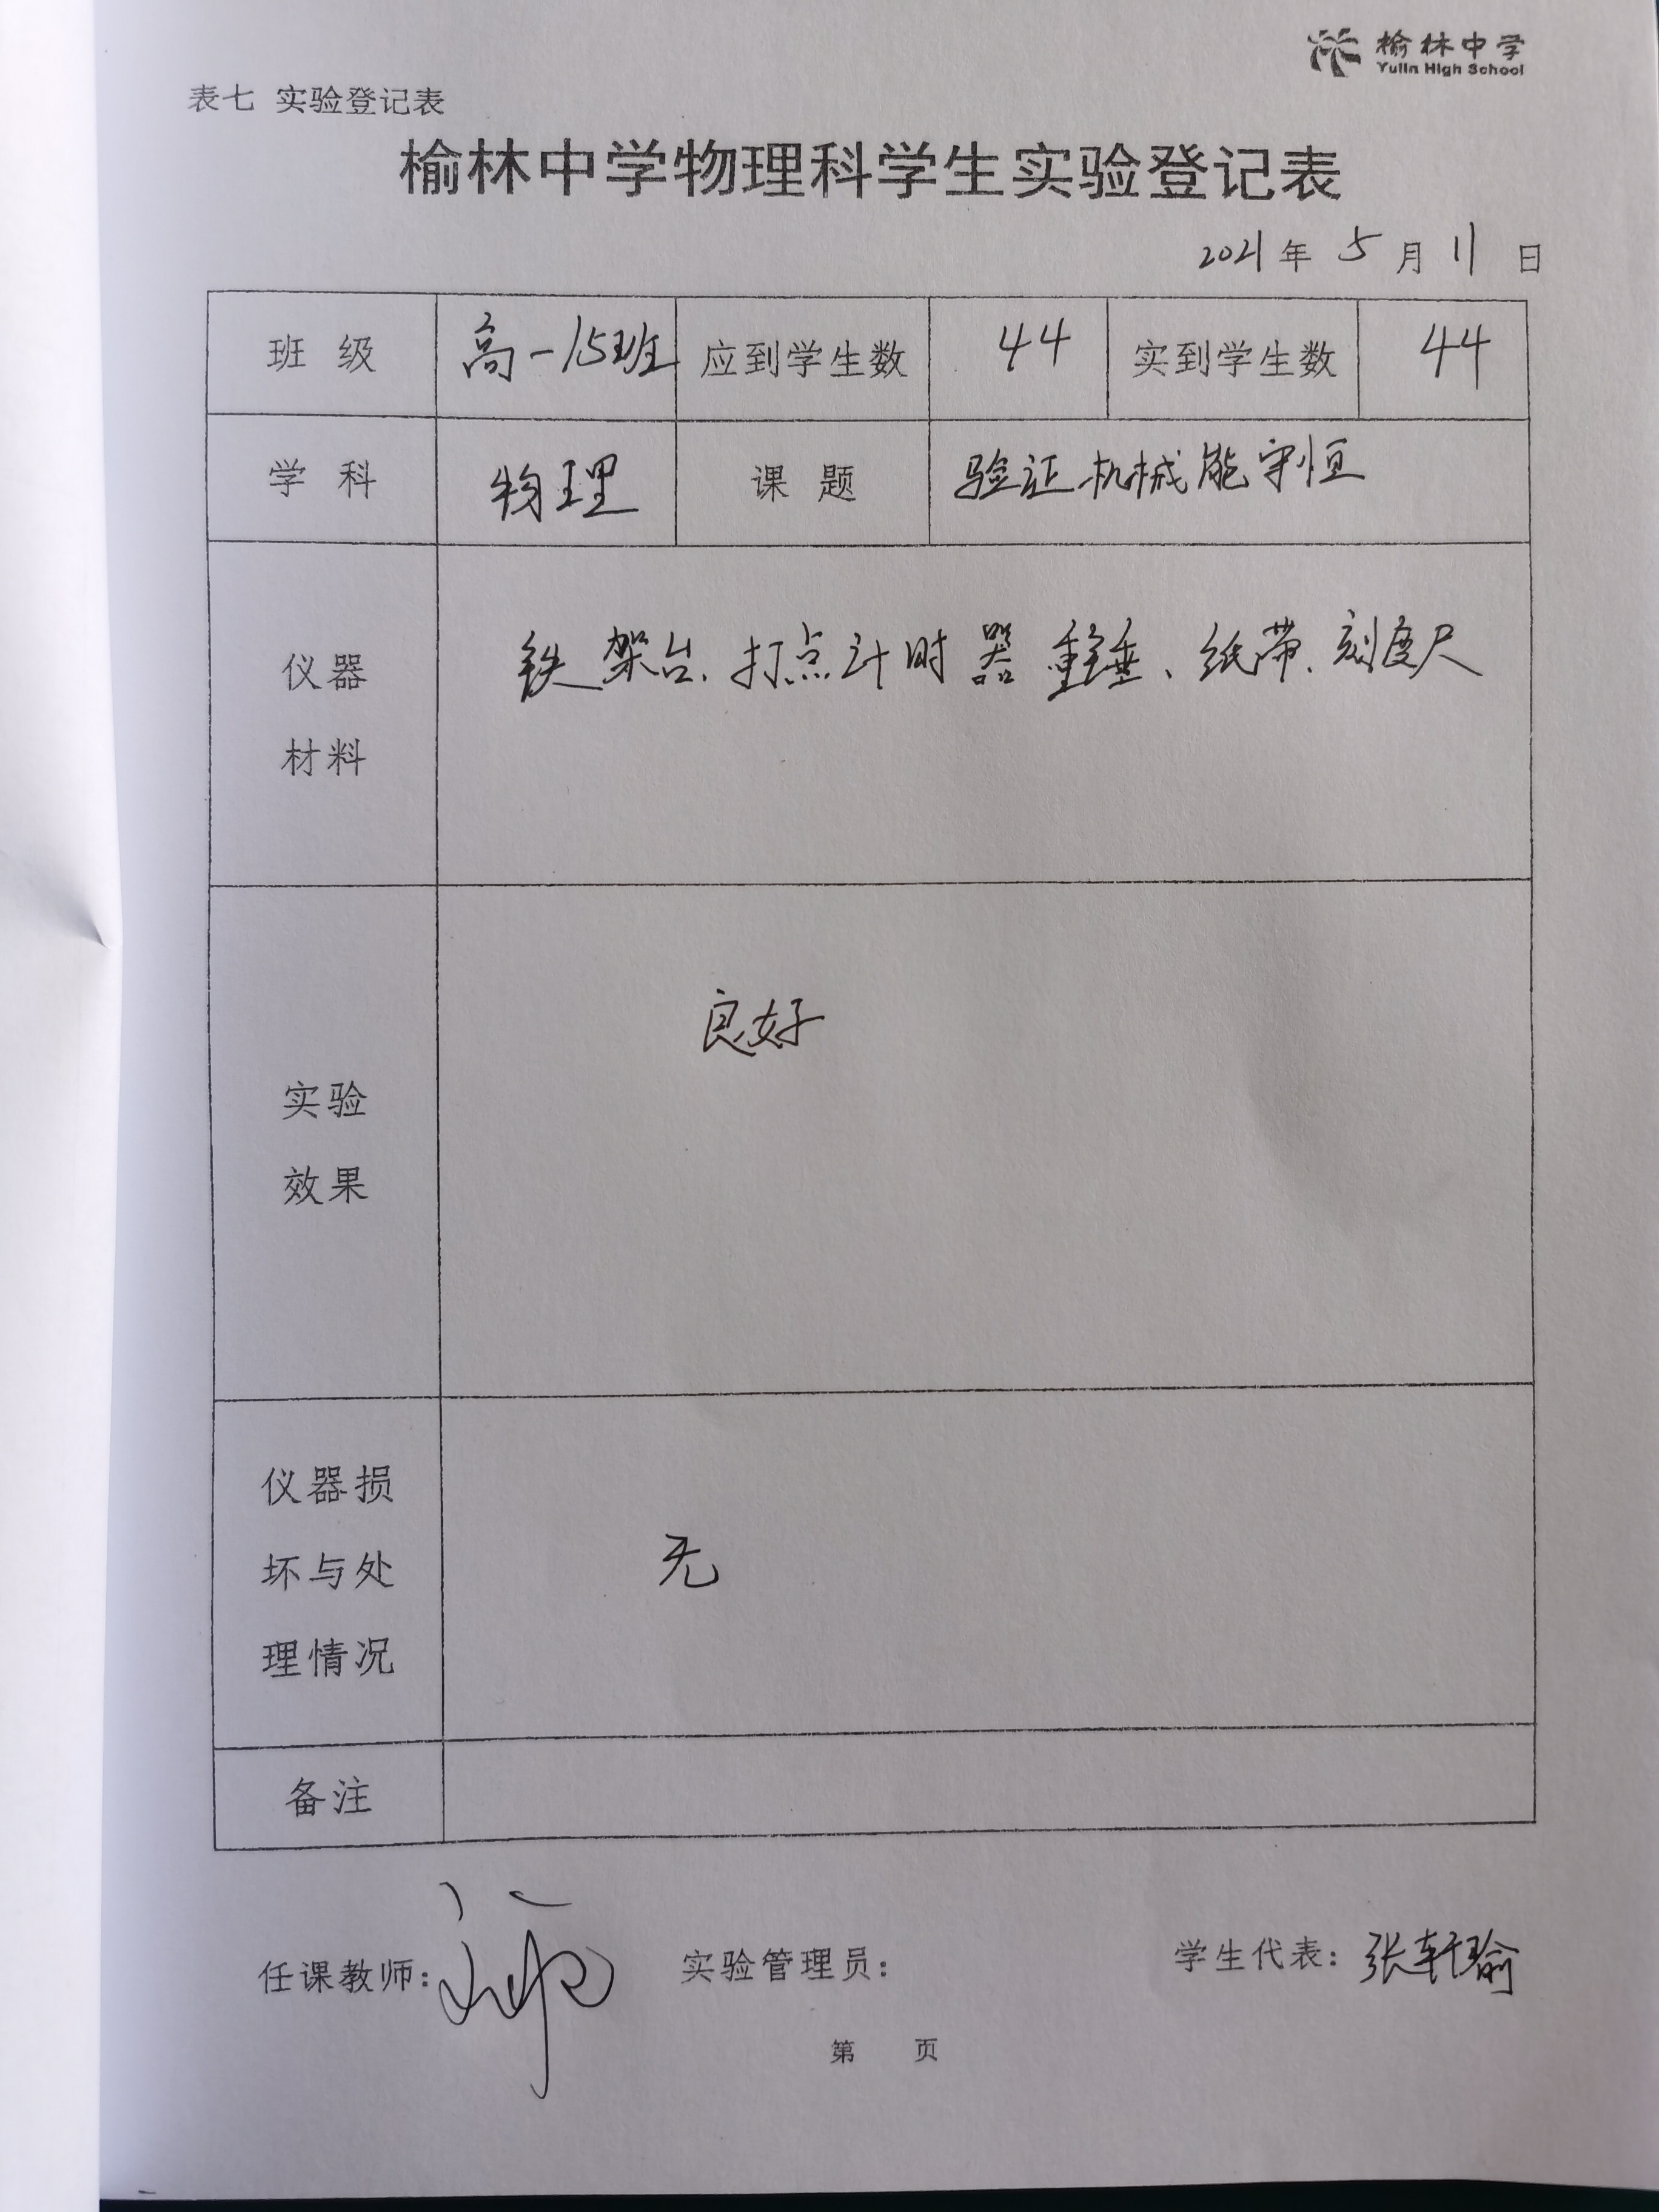 榆林中学
Yulin High School
表七 实验登记表
榆林中学物理科学生实验登记表
2021年 5 月 11 日
班 级 高一15班 应到学生数 44 实到学生数 44
学 科 物理 课 题 验证机械能守恒
仪器
材料
铁架台、打点计时器 重锤、纸带、刻度尺
良好
实验
效果
仪器损
坏与处
理情况
无
备注
任课教师: 实验管理员: 学生代表: 张轩瑜
第 页